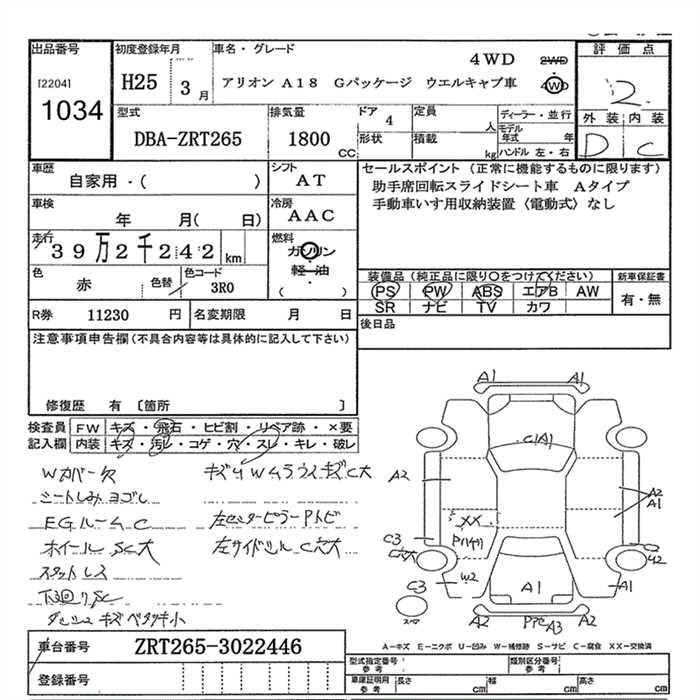 出品番号
[2204]
1034
初度登録年月
H25 3月
車名・グレード
4WD
アリオン A18 Gパッケージ ウエルキャブ車
2WD
4WD
評価点
2
外装 内装
D C
型式
DBA-ZRT265
排気量
1800 CC
ドア
4
形状
定員
人
積載
kg
ディーラー・並行
モデル年式 年
ハンドル 左・右
車歴
自家用・( )
シフト
AT
セールスポイント (正常に機能するものに限ります)
助手席回転スライドシート車 Aタイプ
手動車いす用収納装置〈電動式〉なし
車検
年 月( 日)
冷房
AAC
走行
39万2千242 km
燃料
ガソリン
軽・油
( )
色
赤
色替
色コード
3R0
装備品(純正品に限り○をつけてください)
PS PW ABS エアB AW
SR ナビ TV カワ
新車保証書
有・無
R券 11230 円
名変期限 月 日
後日品
注意事項申告欄(不具合内容等は具体的に記入して下さい)
修復歴 有 〔箇所 〕
検査員 FW キズ・飛石・ヒビ割・リペア跡・×要
記入欄 内装 キズ・汚レ・コゲ・穴・スレ・キレ・破レ
Wカバー欠
シートしみ ヨゴレ
EGルームC
左センターピラーPトビ
ホイールSC大
左サイドシルC穴大
スタットレス
A1 A1
C1A1
A2
A2
A1
XX
C3
C3
W2
A1
A1
A2
A3
A2
スマ
車台番号 ZRT265-3022446
登録番号
A-キズ E-ニクボ U-凹み W-補修跡 S-サビ C-腐食 XX-交換済
型式指定番号
参考
類別区分番号
参考
車庫証明用
参考
長さ cm
幅 cm
高さ cm